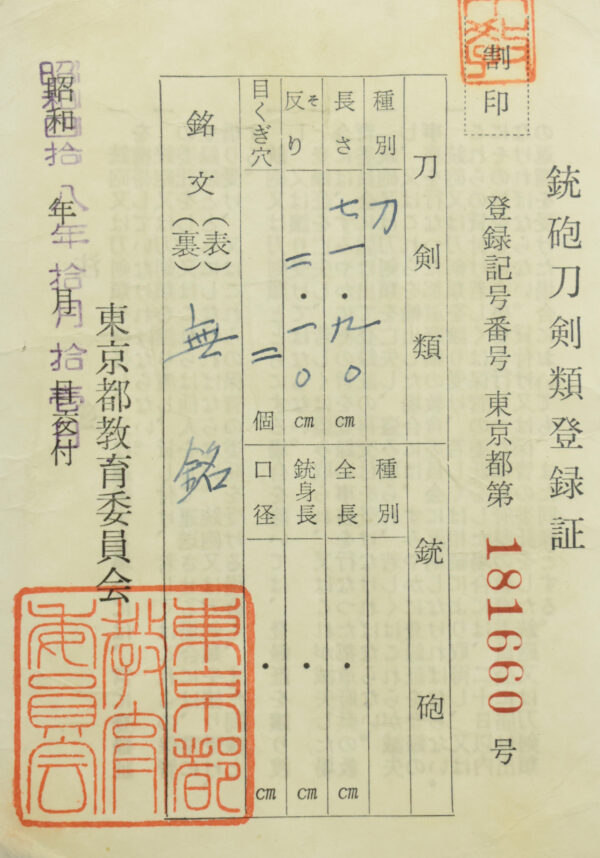 銃砲刀剣類登録証
割印
登録記号番号 東京都第 181660 号
刀剣類
種別 刀
長さ 七一・九〇 cm
反り そ 二・一〇 cm
目くぎ穴 二 個
銃砲
種別
全長 ・ cm
銃身長 ・ cm
口径 ・ cm
銘文 (表) (裏) 無銘
東京都教育委員会
昭和 年 月 日交付
昭和四拾八年拾月拾壹日
東京都
教育
委員会